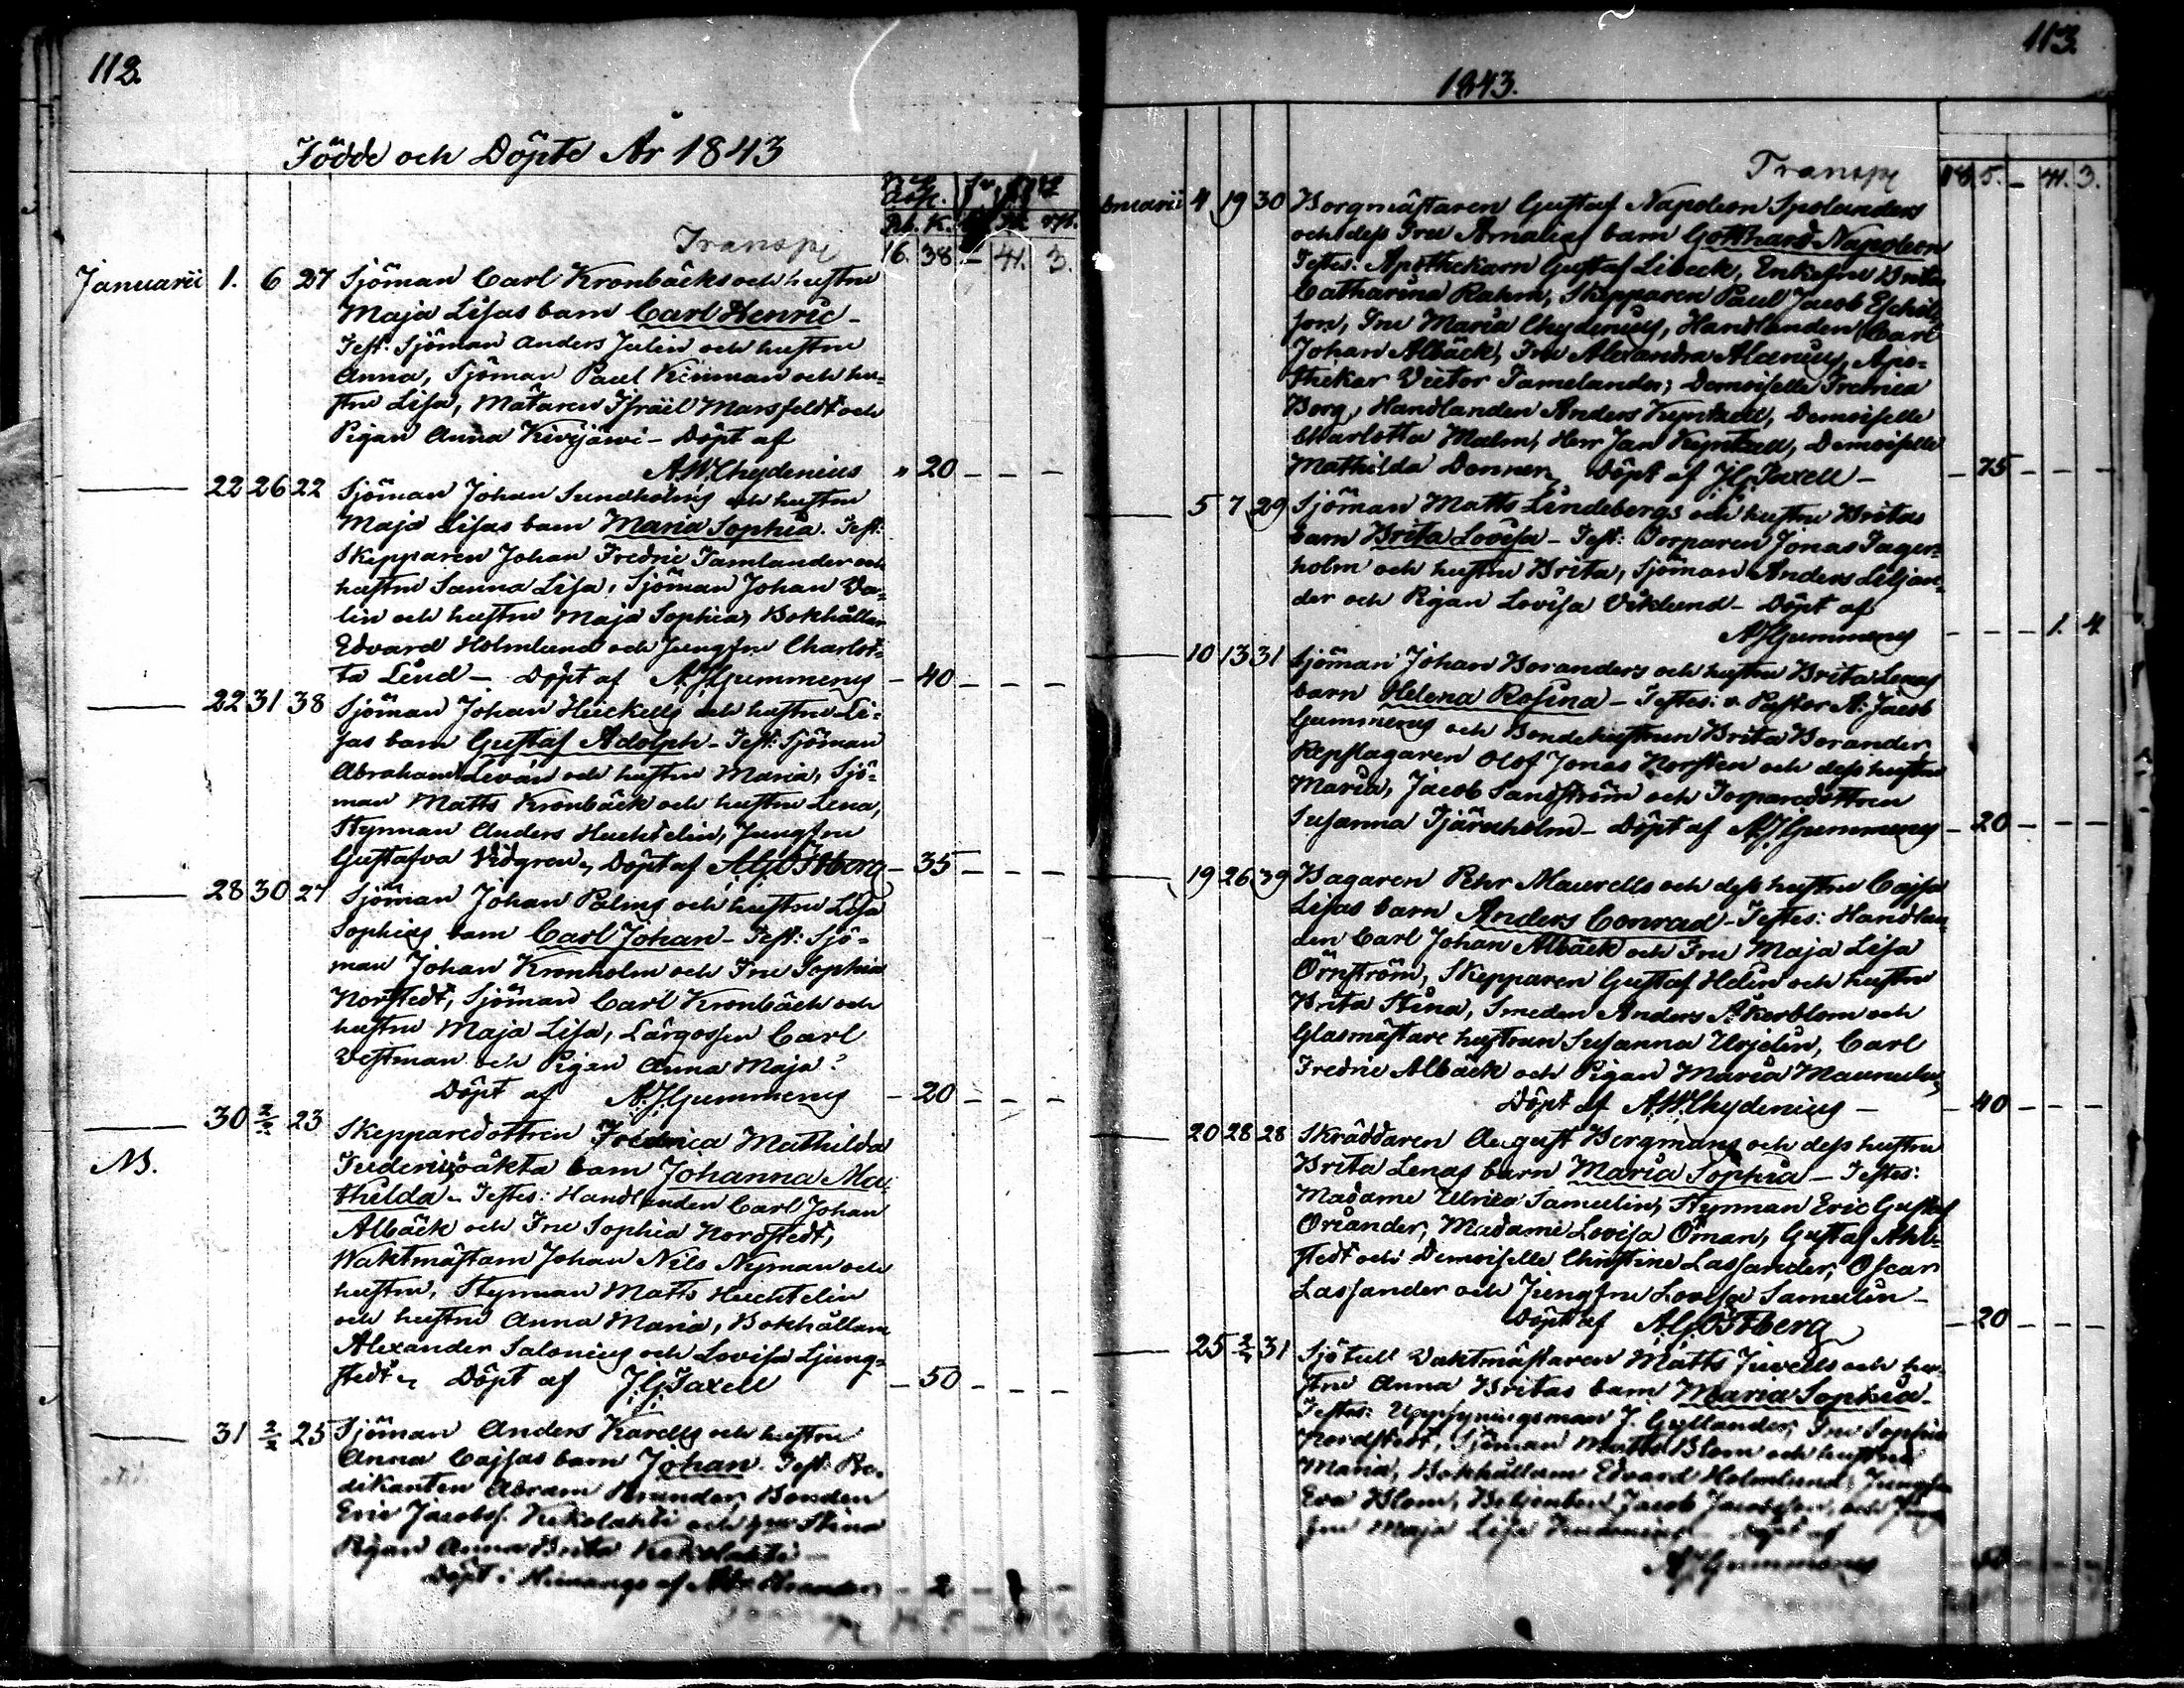 112.
Födde och Döpte År 1843
Transp
16. 38 - 41. 3.
Januarii 1. 6 27 Sjöman Carl Kronbäcks och hustru
Maja Lisas barn Carl Henric -
Test: Sjöman Anders Julin och hustru
Anna, Sjöman Paul Kinman och hu=
stru Lisa, Mätaren Israël Marsfeldt och
Pigan Anna Kivijärvi - Döpt af
A.W. Chydenius " 20 - - -
22 26 22 Sjöman Johan Sundholms och hustru
Maja Lisas barn Maria Sophia. Test:
Skepparen Johan Fredric Tamlander och
hustru Sanna Lisa, Sjöman Johan Da=
lin och hustru Maja Sophia, Bokhållar
Edvard Holmlund och Jungfru Charlot=
ta Lind - Döpt af A.J. Gummerus - 40 - - -
22 31 38 Sjöman Johan Heickells och hustru Li=
sas barn Gustaf Adolph - Test: Sjöman
Abraham Leván och hustru Maria, Sjö=
man Matts Kronbäck och hustru Lena,
Styrman Anders Huchtelin, Jungfru
Gustafva Vidgren, Döpt af A.G. Östberg - 35 - - -
28 30 27 Sjöman Johan Palins och hustru Lisa
Sophias barn Carl Johan - Test: Sjö=
man Johan Kronholm och Fru Sophia
Norstedt, Sjöman Carl Kronbäck och
hustru Maja Lisa, Lärgossen Carl
Vestman och Pigan Anna Maja?
Döpt af A.J. Gummerus - 20 - - -
30 2/2 23 Skepparedottren Fredrica Mathilda
NB. oäkta barn Johanna Ma=
thilda - Testes: Handlanden Carl Johan
Albäck och Fru Sophia Nordstedt,
Waktmästarn Johan Nils Nyman och
hustru, Styrman Matts Huchtelin
och hustru Anna Maria, Bokhållarn
Alexander Salonius och Lovisa Ljung=
stedt, Döpt af J.G. Taxell - 50 - - -
31 2/2 25 Sjöman Anders Karells och hustru
Anna Cajsas barn Johan. Test: Pre=
dikanten Abram Bonden
Eric Jacobss. Kekolahti och hu Stina
Pigan Anna Brita Kekolahti -
Döpt i Himango af - 2 - -
113.
1843.
Transp
18. 5. - 41. 3.
bruarii 4 19 30 Borgmästaren Gustaf Napoleon Spolanders
och dess Fru Amalias barn Gotthard Napoleon
Testes: Apothekarn Gustaf Libeck, Enkefru Brita
Catharina Rahm, Skepparen Paul Jacob Eschils=
son, Fru Maria Chydenius, Handlanden Carl
Johan Albäck, Fru Alexandra Alcenius, Apo=
thekar Victor Tamelander, Demoiselle Fredrica
Borg, Handlanden Anders Kyntzell, Demoiselle
Charlotta Malm, Herr Jan Kyntzell, Demoiselle
Mathilda Donner, Döpt af J.G. Taxell - - 75 - - -
5 7 29 Sjöman Matts Lindebergs och hustru Britas
barn Brita Lovisa - Test: Torparen Jonas Jager=
holm och hustru Brita, Sjöman Anders Liljan=
der och Pigan Lovisa Viklund - Döpt af
A.J. Gummerus - - - 1. 4.
10 13 31 Sjöman Johan Boranders och hustru Brita Lenas
barn Helena Rosina - Testes: v. Pastor A. Jacob
Gummerus och Bondehustrun Brita Borander,
Repslagaren Olof Jonas Norsten och dess hustru
Maria, Jacob Sandström och Torparedottren
Susanna Tjäruholm - Döpt af A.J. Gummerus - 20 - - -
19 26 39 Bagaren Pehr Maurells och dess hustru Cajsa
Lisas barn Anders Conrad - Testes: Handlan=
den Carl Johan Albäck och Fru Maja Lisa
Örnström, Skepparen Gustaf Helin och hustru
Brita Stina, Smeden Anders Åkerblom och
Glasmästare hustrun Susanna Urjelin, Carl
Fredric Albäck och Pigan Maria
Döpt af A.W. Chydenius - - 40 - - -
20 28 28 Skräddaren August Bergmans och dess hustru
Brita Lenas barn Maria Sophia - Testes:
Madame Ulrica Samulin, Styrman Eric Gustaf
Oriander, Madame Lovisa Öman, Gustaf Ahl=
stedt och Demoiselle Christine Lassander, Oscar
Lassander och Jungfru Lovisa Samulin -
Döpt af A.G. Östberg - 20 - - -
25 31 Sjötull Vaktmästaren Matts Juvells och hu=
stru Anna Britas barn Maria Sophia -
Testes: Uppsyningsman J. Gyllander, Fru Sophia
Nordstedt, Sjöman Matts Blom och hustru
Maria, Bokhållarn Edvard Holmlund, Jungfru
Eva Blom, Betjenten Jacob Jacobsson, och Jung
fru Maja Lisa Döpt af
A.J. Gummerus 50